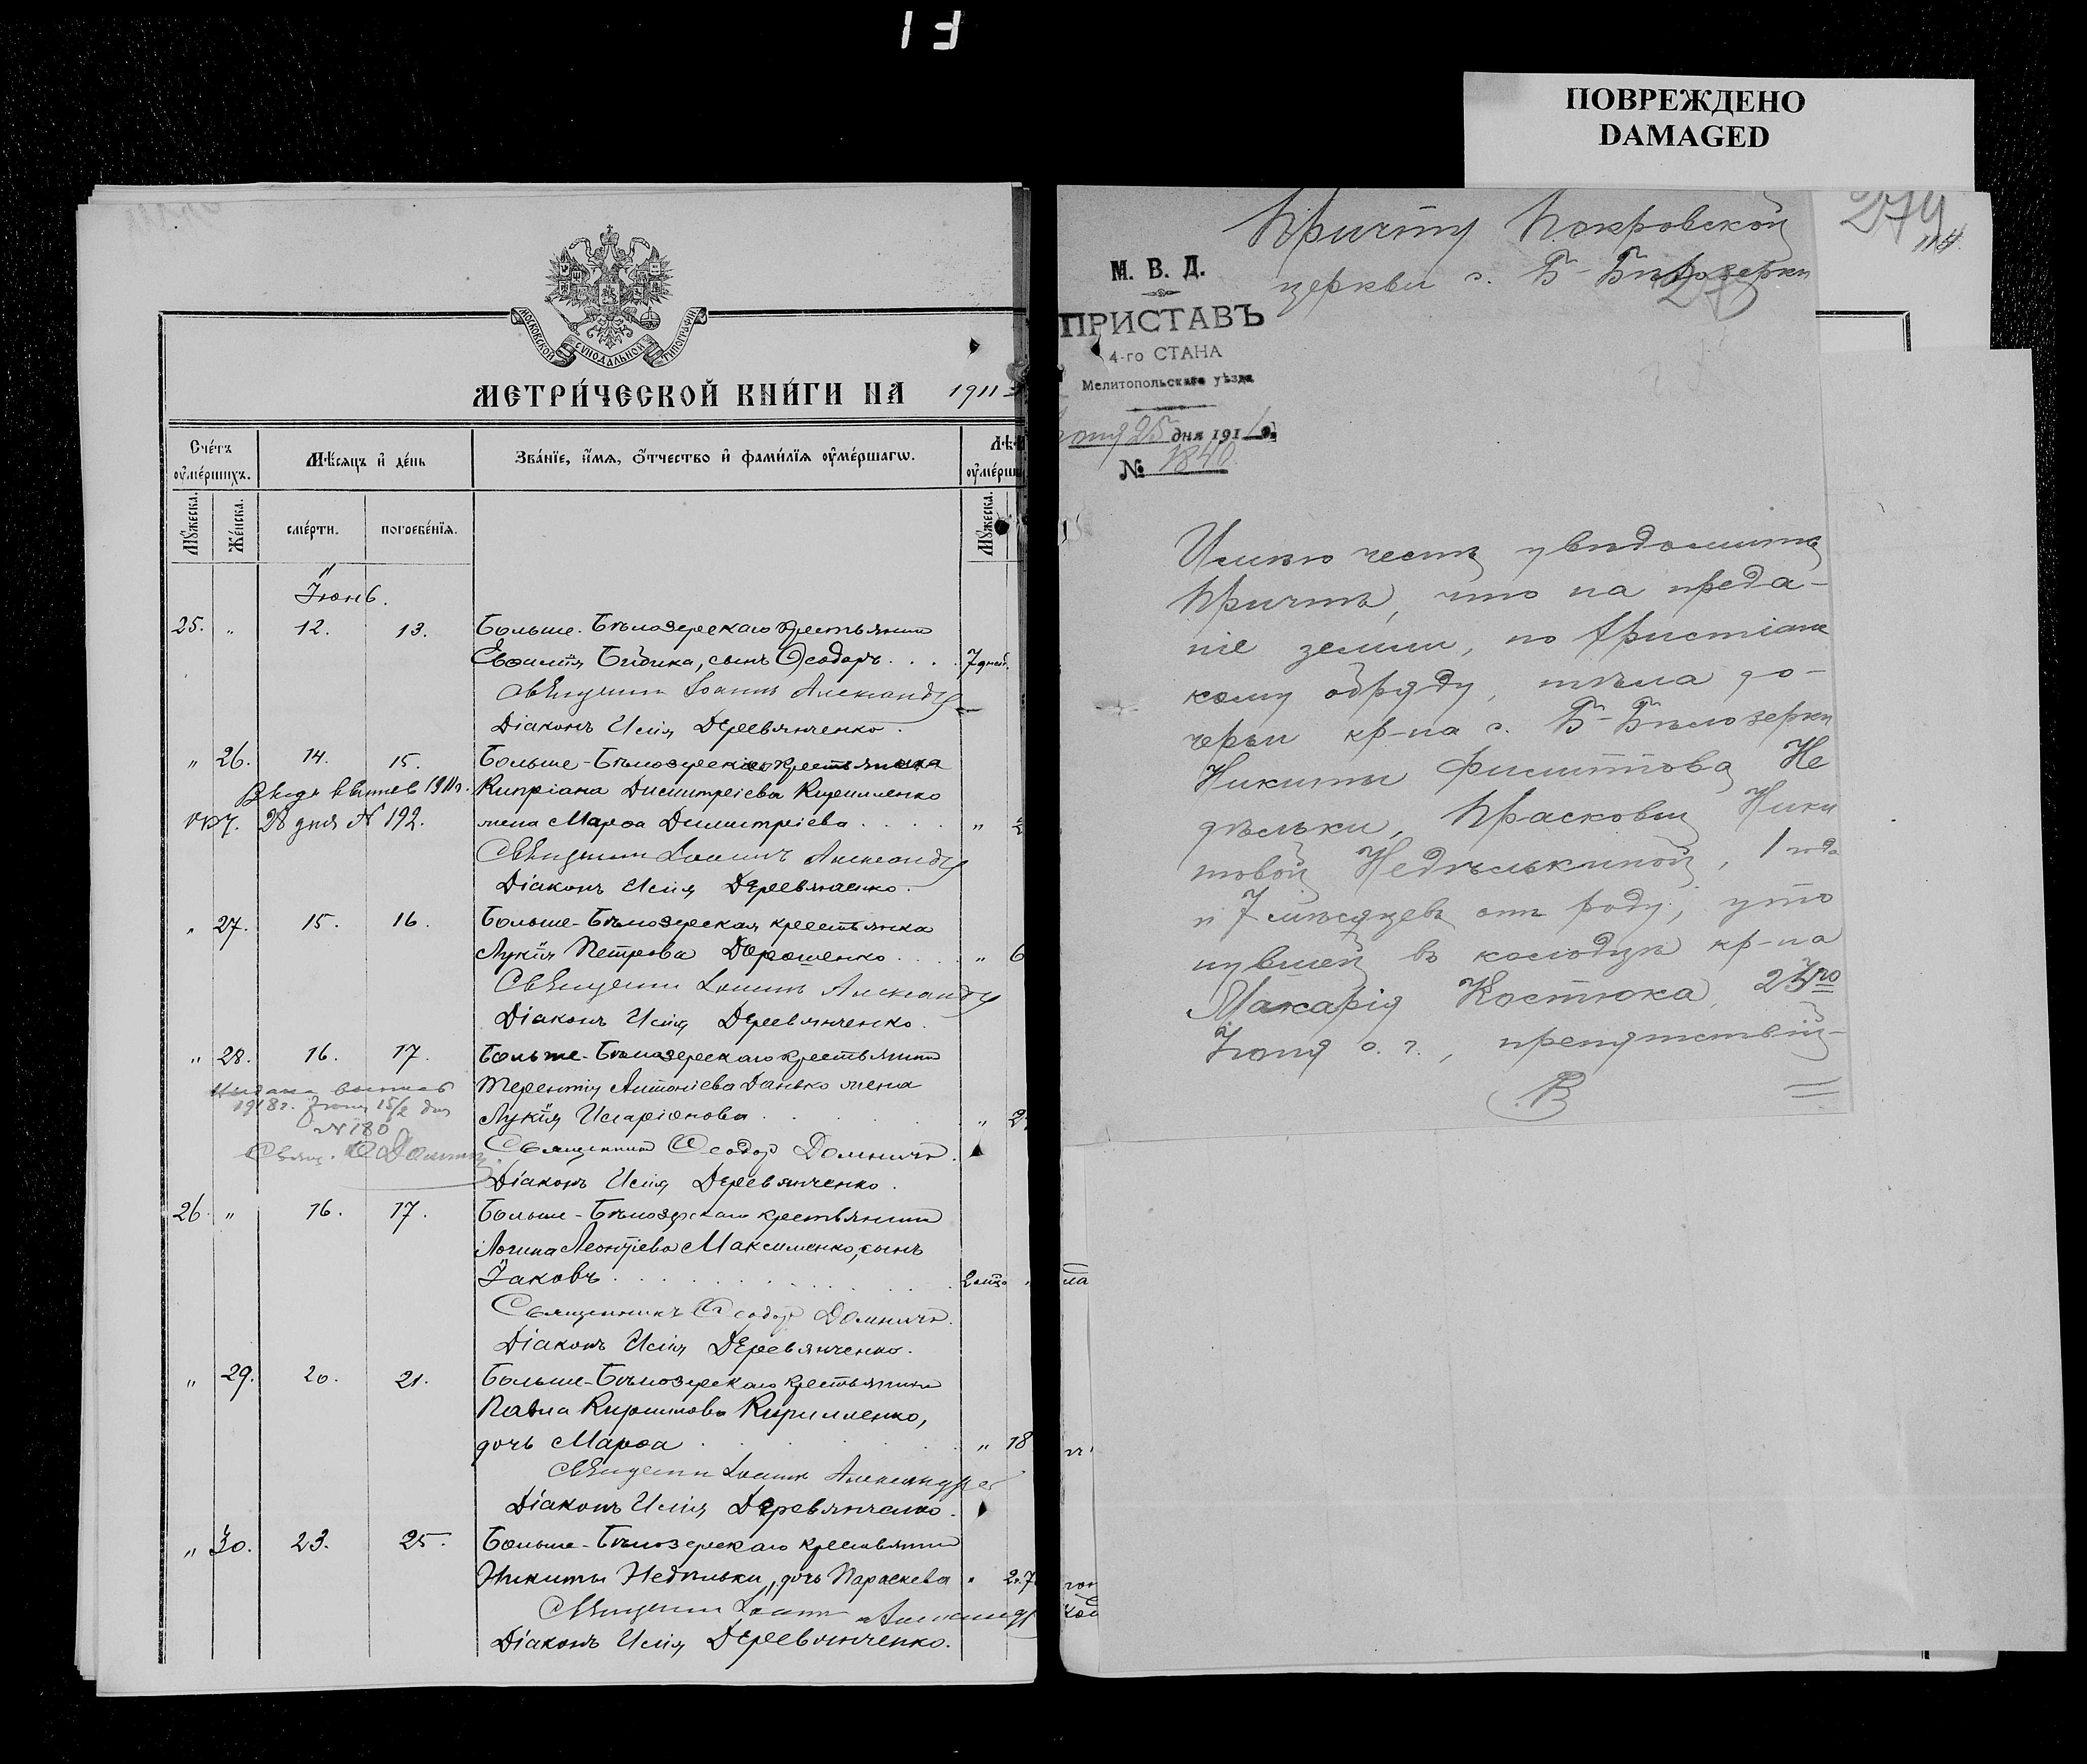 ПОВРЕЖДЕНО
DAMAGED
МОСКОВСКОЙ СУНОДАЛЬНОЙ ТИПОГРАФІИ
МЕТРИ́ЧЕСКОЙ КНИ́ГИ НА 1911
Сче́тъ ᲂу҆ме́ршихъ.
Мѣ́сяцъ и҆ де́нь
Зва́нїе, и҆́мя, ѻ҆́тчество и҆ фами́лїя ᲂу҆ме́ршагѡ.
Мꙋ́жеска.
Же́нска.
сме́рти.
погребе́нїя.
Мꙋ́жеска.
Іюнь.
25. " 12. 13. Больше-Бѣлозерскаго крестьянина
Бибика, сынъ Ѳеодоръ . . . 7 дней.
Священникъ Іоаннъ Александр
Діаконъ Илія Деревянченко.
" 26. 14. 15. Больше-Бѣлозерскаго крестьянина
Кипріана Димитріева Кириленко
жена Марѳа Димитріева . . . "
28 дня № 192.
Священникъ Іоаннъ Александр
Діаконъ Илія Деревянченко.
" 27. 15. 16. Больше-Бѣлозерская крестьянка
Лукія Петрова Дорошенко . . . . " 6
Священникъ Іоаннъ Александр
Діаконъ Илія Деревянченко.
" 28. 16. 17. Больше-Бѣлозерскаго крестьянина
Терентія Антоніева Данько жена
Лукія Иларіонова . . . " 2
1918 г. Іюня 15/2 дня
№ 180
Священникъ Ѳеодоръ Домничъ.
Діаконъ Илія Деревянченко.
26. " 16. 17. Больше-Бѣлозерскаго крестьянина
Логина Леонтіева Максименко, сынъ
Іаковъ . . . . . . . . . .
Священникъ Ѳеодоръ Домничъ.
Діаконъ Илія Деревянченко.
" 29. 20. 21. Больше-Бѣлозерскаго крестьянина
Павла Кириллова Кирилленко,
дочь Марѳа . . . . . . " 18
Священникъ Іоаннъ Александров
Діаконъ Илія Деревянченко.
" 30. 23. 25. Больше-Бѣлозерскаго крестьянина
Никиты Недѣльки, дочь Параскева " 2. 7
Священникъ Іоаннъ Александр
Діаконъ Илія Деревянченко.
Причту Покровской
церкви с. Б-Бѣлозерки
274
М. В. Д.
ПРИСТАВЪ
4-го СТАНА
Мелитопольскаго уѣзда
Іюня 25 дня 1911 г.
№ 1840
Имѣю честь увѣдомить
Причтъ, что на преда-
ніе земли, по Христіанс
кому обряду, тѣла до-
чери кр-на с. Б-Бѣлозерки
Никиты Филиппова Не
дѣльки, Прасковіи Ники
товой Недѣлькиной, 1 года
и 7 мѣсяцевъ отъ роду, уто
нувшей въ колодцѣ кр-на
Макарія Костюка, 23го
Іюня с. г., препятствій